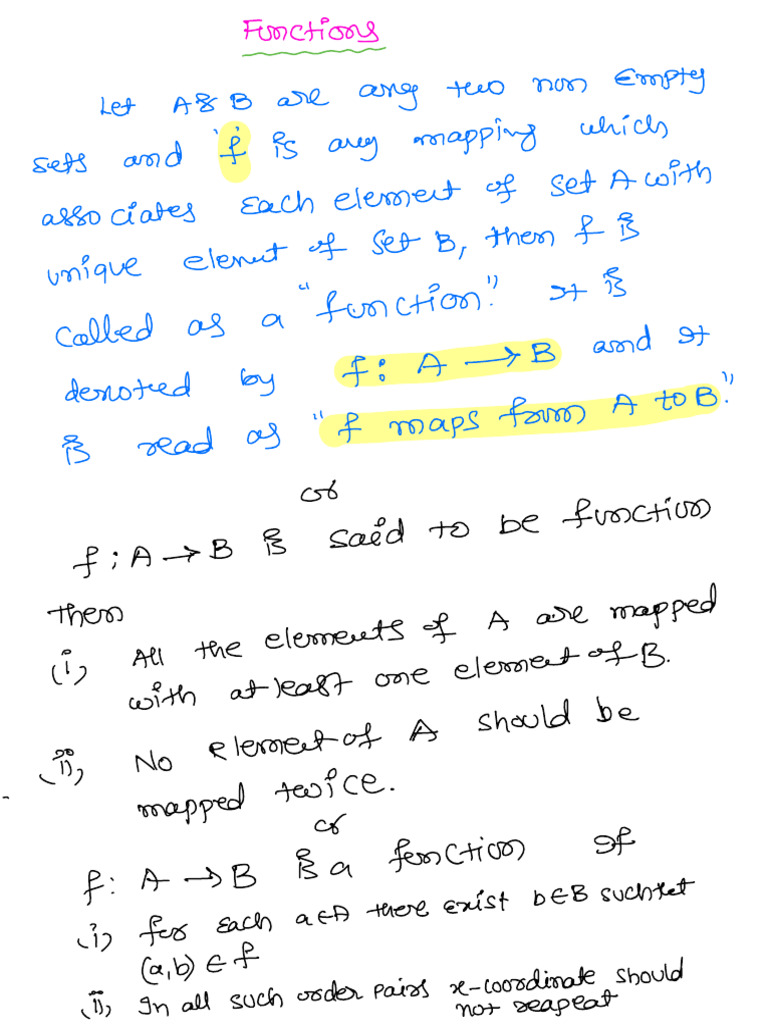 Functions
Let A & B are any two non Empty
sets and 'f' is any mapping which
associates Each element of set A with
unique elemut of set B, then f is
called as a "function." It is
denoted by f: A → B and It
is read as "f maps from A to B."
or
f: A → B is said to be function
then
(i) All the elements of A are mapped
with at least one element of B.
(ii) No element of A should be
mapped twice.
or
f: A → B is a function If
(i) for Each a∈A there exist b∈B suchtet
(a,b) ∈ f
(ii) In all such order pairs x-coordinate should
not reapeat